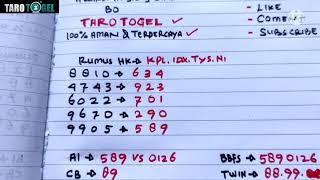 TARO TOGEL
BO
TARO TOGEL ✓
100% AMAN & TERPERCAYA ✓
- LIKE
- COME
- SUBSCRIBE
RUMUS HK → KPL. IDX. TYS. NI
8810 → 634
4743 → 923
6022 → 701
9670 → 290
9905 → 589
AI → 589 VS 0126
CB → 89
BBFS → 5890126
TWIN → 88.99.